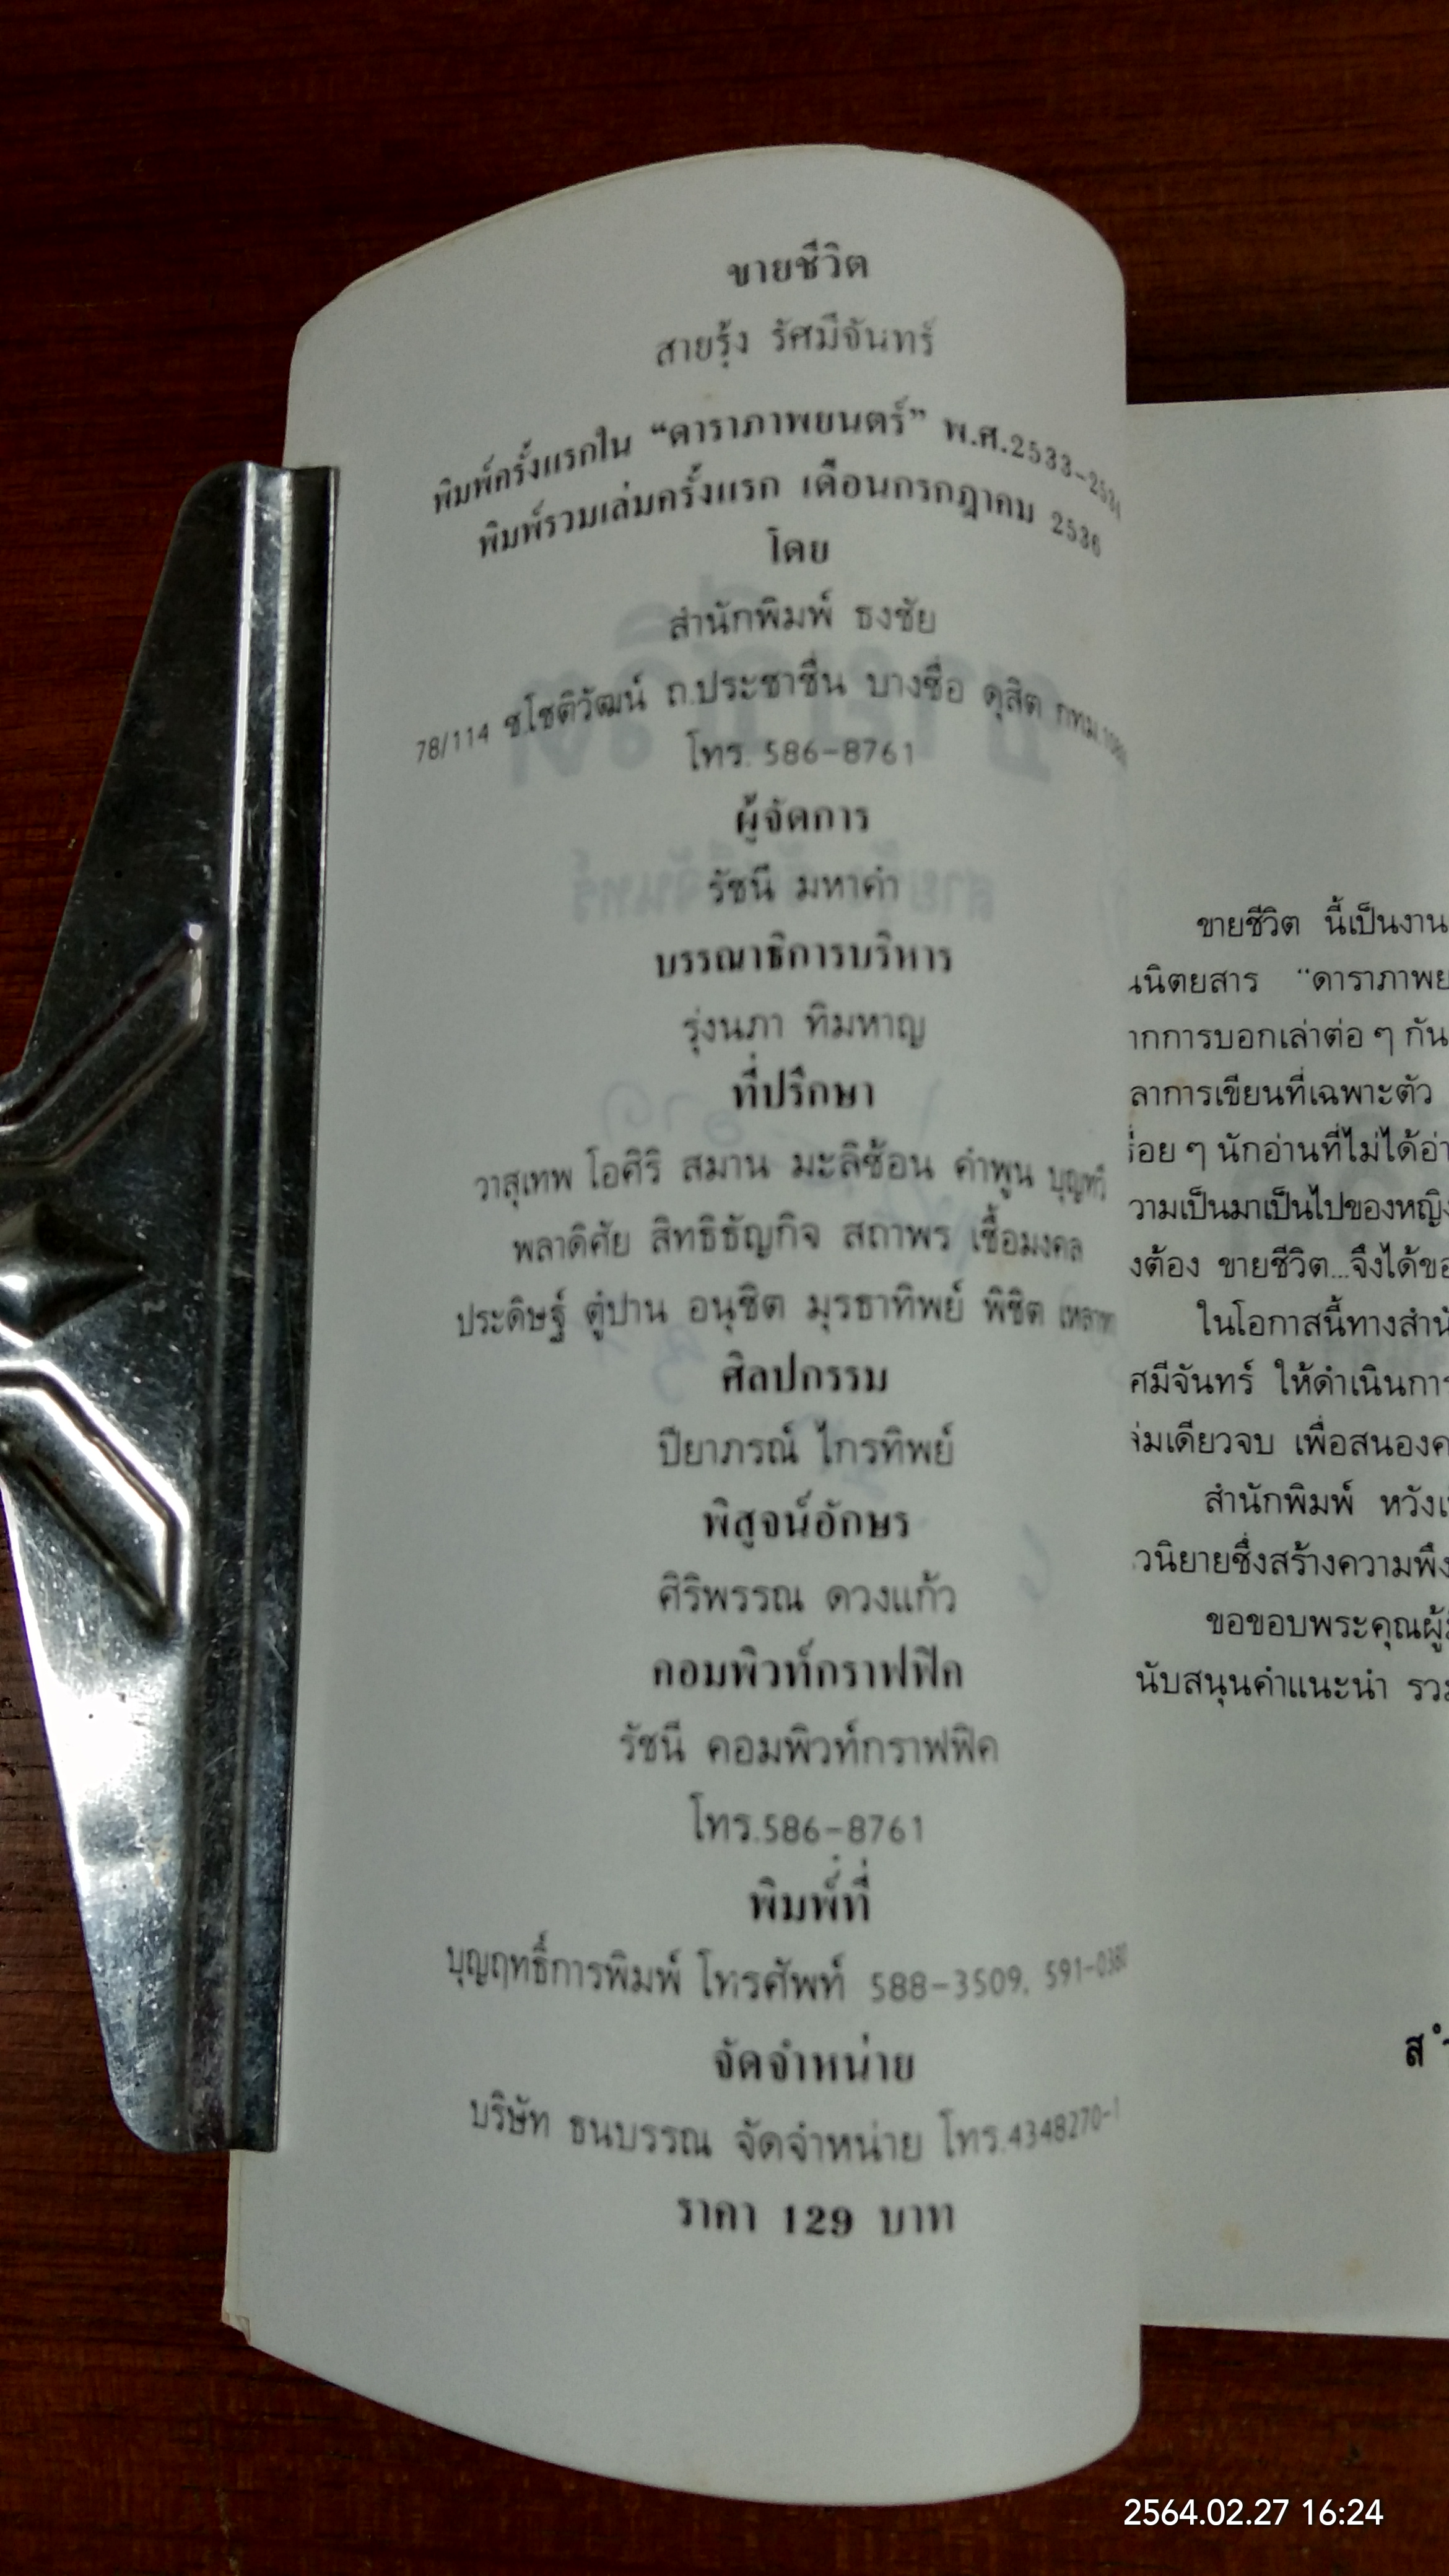 ขายชีวิต
สายรุ้ง รัศมีจันทร์
พิมพ์ครั้งแรกใน “ดาราภาพยนตร์” พ.ศ.2533-2534
พิมพ์รวมเล่มครั้งแรก เดือนกรกฎาคม 2536
โดย
สำนักพิมพ์ ธงชัย
78/114 ซ.โชติวัฒน์ ถ.ประชาชื่น บางซื่อ ดุสิต กทม.
โทร. 586-8761
ผู้จัดการ
รัชนี มหาคำ
บรรณาธิการบริหาร
รุ่งนภา ทิมหาญ
ที่ปรึกษา
วาสุเทพ โอศิริ สมาน มะลิซ้อน คำพูน
พลาดิศัย สิทธิธัญกิจ สถาพร เชื้อมงคล
ประดิษฐ์ ตู้ปาน อนุชิต มุรธาทิพย์ พิชิต
ศิลปกรรม
ปิยาภรณ์ ไกรทิพย์
พิสูจน์อักษร
ศิริพรรณ ดวงแก้ว
คอมพิวท์กราฟฟิค
รัชนี คอมพิวท์กราฟฟิค
โทร.586-8761
พิมพ์ที่
บุญฤทธิ์การพิมพ์ โทรศัพท์ 588-3509, 591-0380
จัดจำหน่าย
บริษัท ธนบรรณ จัดจำหน่าย โทร.4348270-1
ราคา 129 บาท
ขายชีวิต นี้เป็นงาน
นิตยสาร “ดาราภาพย
ากการบอกเล่าต่อ ๆ กัน
ลาการเขียนที่เฉพาะตัว
่อย ๆ นักอ่านที่ไม่ได้อ่า
วามเป็นมาเป็นไปของหญิง
งต้อง ขายชีวิต...จึงได้ขอ
ในโอกาสนี้ทางสำนั
ศมีจันทร์ ให้ดำเนินการ
่มเดียวจบ เพื่อสนองค
สำนักพิมพ์ หวังเ
วนิยายซึ่งสร้างความพึง
ขอขอบพระคุณผู้
นับสนุนคำแนะนำ รวม
สำ
2564.02.27 16:24